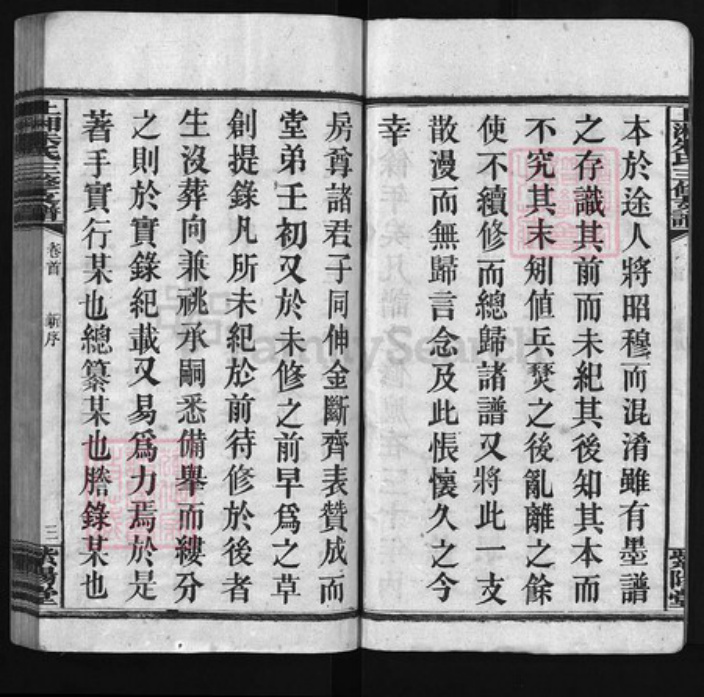 本於途人將昭穆而混淆雖有墨譜
之存識其前而未紀其後知其本而
不究其末矧値兵燹之後亂離之餘
使不續修而總歸諸譜又將此一支
散漫而無歸言念及此悵懷久之今
幸
房尊諸君子同伸金斷齊表贊成而
堂弟壬初又於未修之前早爲之草
創提錄凡所未紀於前待修於後者
生沒葬向兼祧承嗣悉備舉而縷分
之則於實錄紀載又易爲力焉於是
著手實行某也總纂某也謄錄某也
卷首
新序
三
紫陽堂
FamilySearch